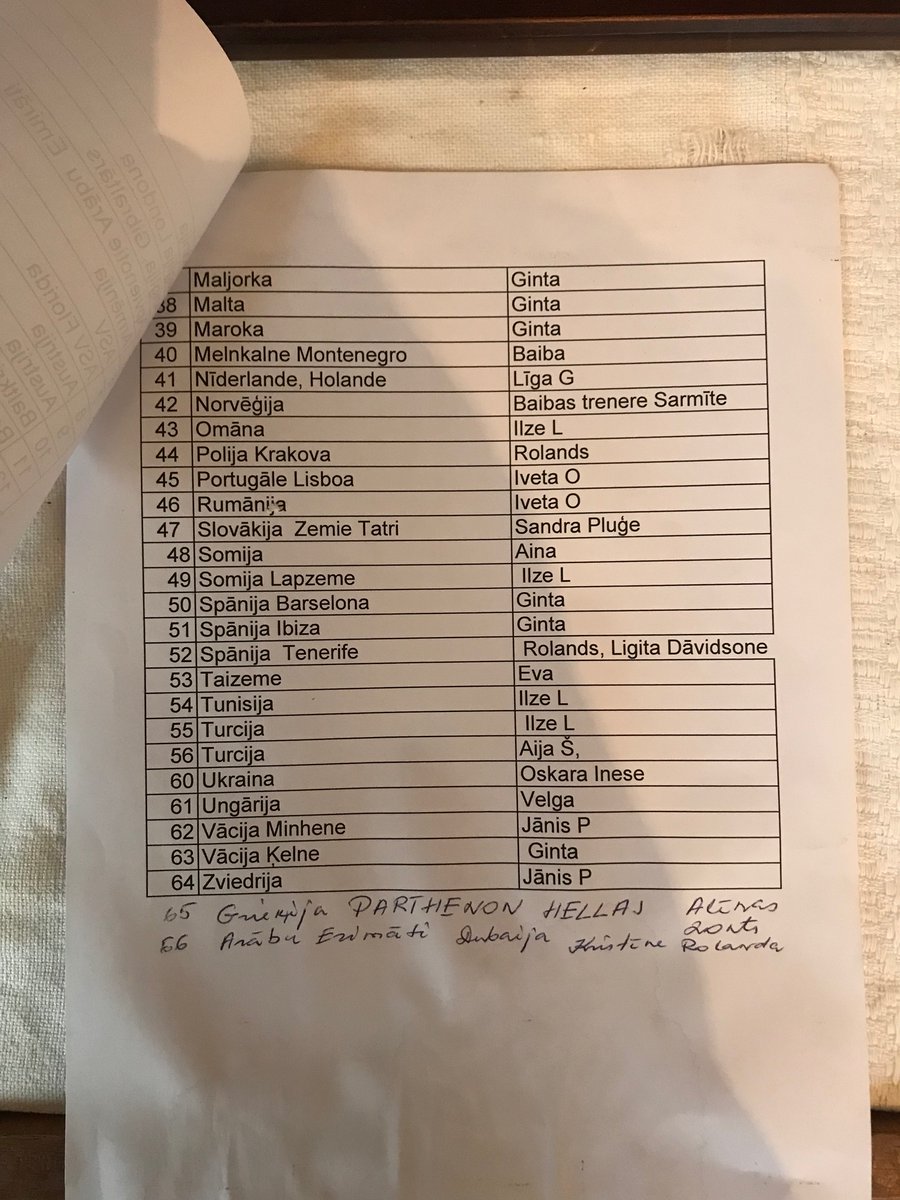 Maljorka Ginta
38 Malta Ginta
39 Maroka Ginta
40 Melnkalne Montenegro Baiba
41 Nīderlande, Holande Līga G
42 Norvēģija Baibas trenere Sarmīte
43 Omāna Ilze L
44 Polija Krakova Rolands
45 Portugāle Lisboa Iveta O
46 Rumānija Iveta O
47 Slovākija Zemie Tatri Sandra Pluģe
48 Somija Aina
49 Somija Lapzeme Ilze L
50 Spānija Barselona Ginta
51 Spānija Ibiza Ginta
52 Spānija Tenerife Rolands, Ligita Dāvidsone
53 Taizeme Eva
54 Tunisija Ilze L
55 Turcija Ilze L
56 Turcija Aija Š,
60 Ukraina Oskara Inese
61 Ungārija Velga
62 Vācija Minhene Jānis P
63 Vācija Ķelne Ginta
64 Zviedrija Jānis P
65 Grieķija PARTHENON HELLAS
66 Arābu Emirāti Dubaija Kristīne Rolanda